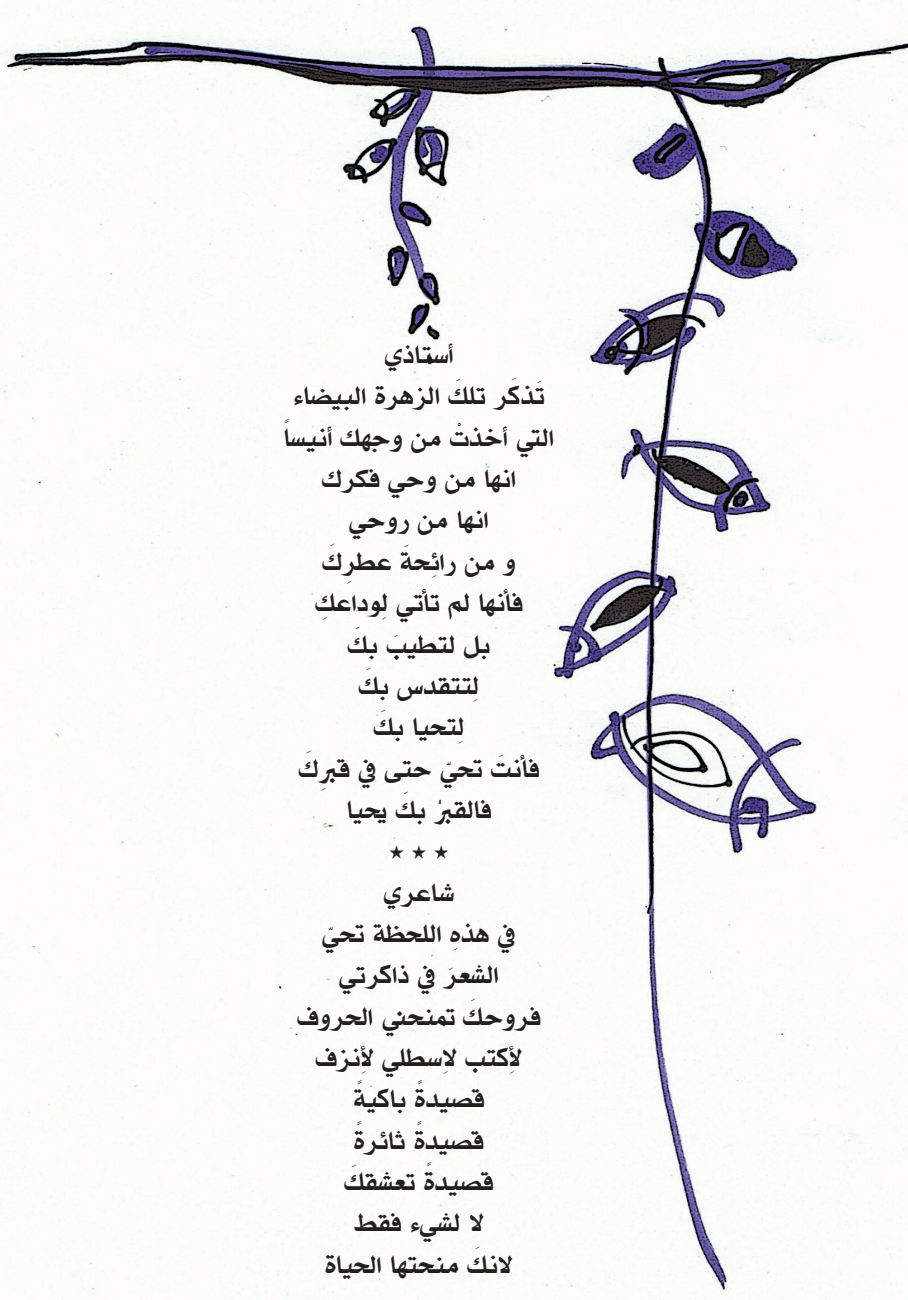 أستاذي
تَذكَر تلكَ الزهرة البيضاء
التي أخذتْ من وجهك أنيساً
انها من وحي فكرك
انها من روحي
و من رائِحةَ عطرِكَ
فأنها لم تأتي لِوداعكِ
بل لتطيبَ بكَ
لِتتقدس بكَ
لِتحيا بكَ
فأنتَ تحيّ حتى في قبرِكَ
فالقبرُ بكَ يحيا
★ ★ ★
شاعري
في هذهِ اللحظة تحيّ
الشعرَ في ذاكرتي
فروحكَ تمنحني الحروف
لأكتب لاِسطلي لأنزف
قصيدةً باكيةً
قصيدةً ثائرةً
قصيدةً تعشقكَ
لا لشيء فقط
لانكَ منحتها الحياة